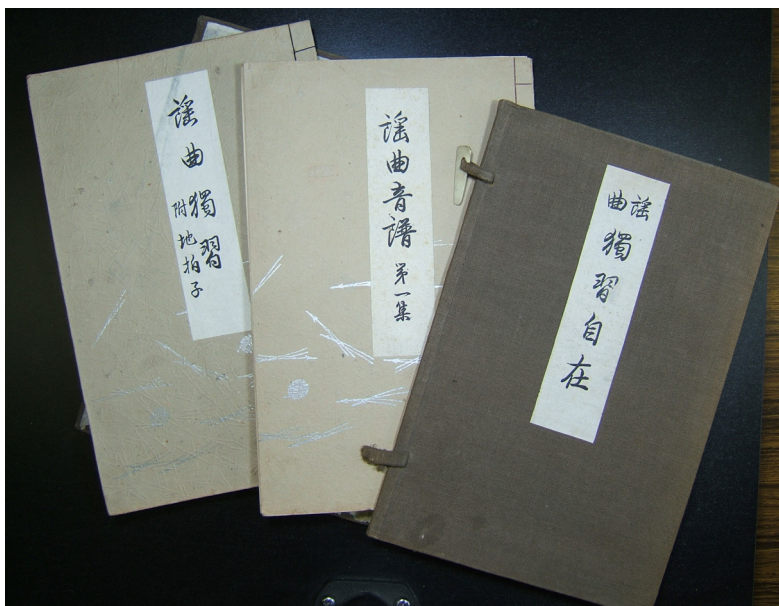 謡曲獨習
附地拍子
謡曲音譜 第一集
謡曲獨習自在